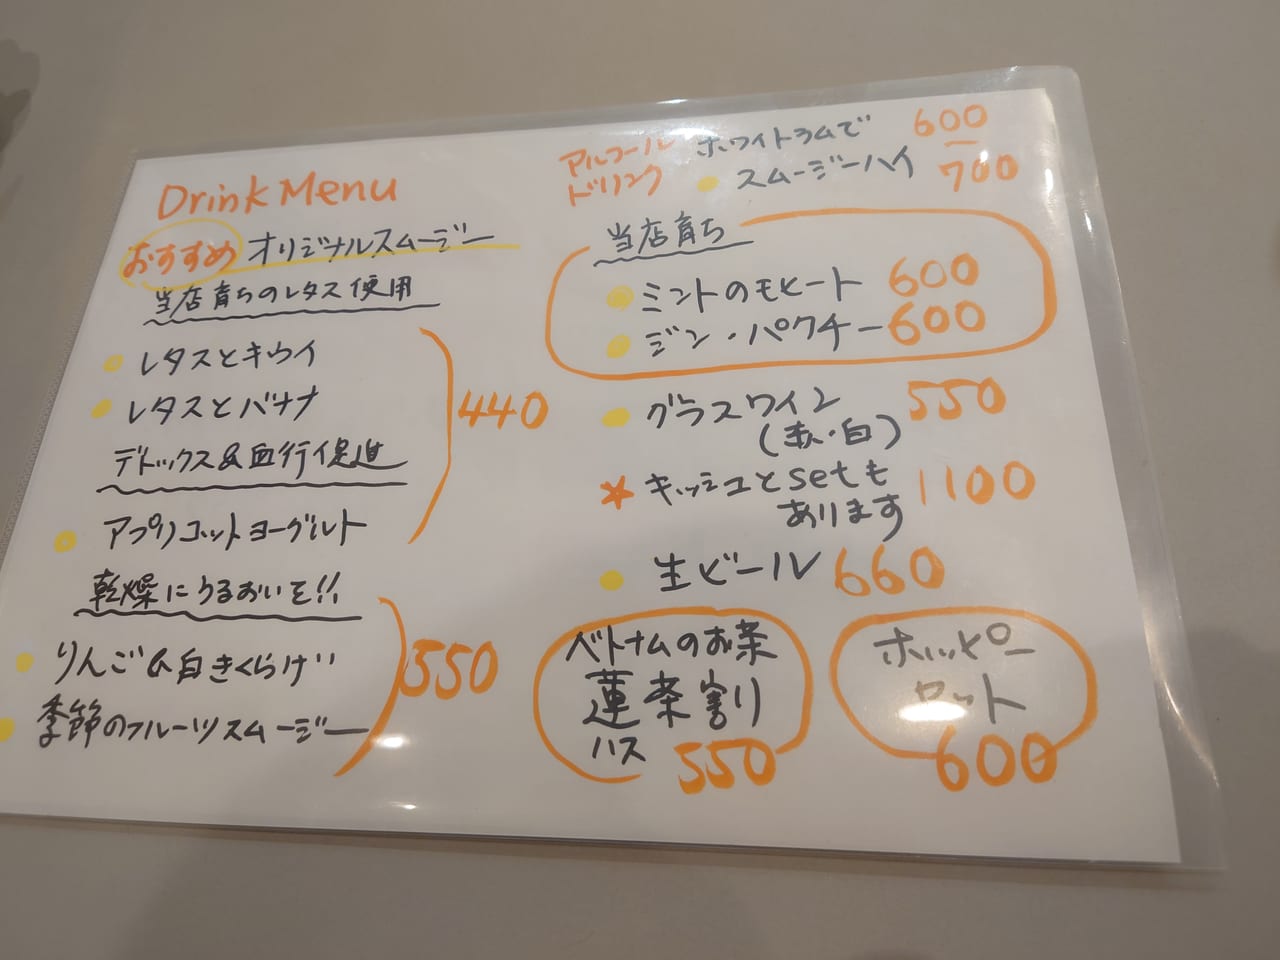 Drink Menu
おすすめ オリジナルスムージー
当店育ちのレタス使用
レタスとキウイ
レタスとバナナ
440
デトックス&血行促進
アプリコットヨーグルト
乾燥にうるおいを!!
りんご&白きくらげ
550
季節のフルーツスムージー
アルコール
ドリンク
ホワイトラムで
スムージーハイ
600
700
当店育ち
ミントのモヒート 600
ジン・パクチー 600
グラスワイン 550
(赤・白)
キッシュとsetも 1100
あります
生ビール 660
ベトナムのお茶
蓮茶割り
ハス 550
ホッピー
セット
600